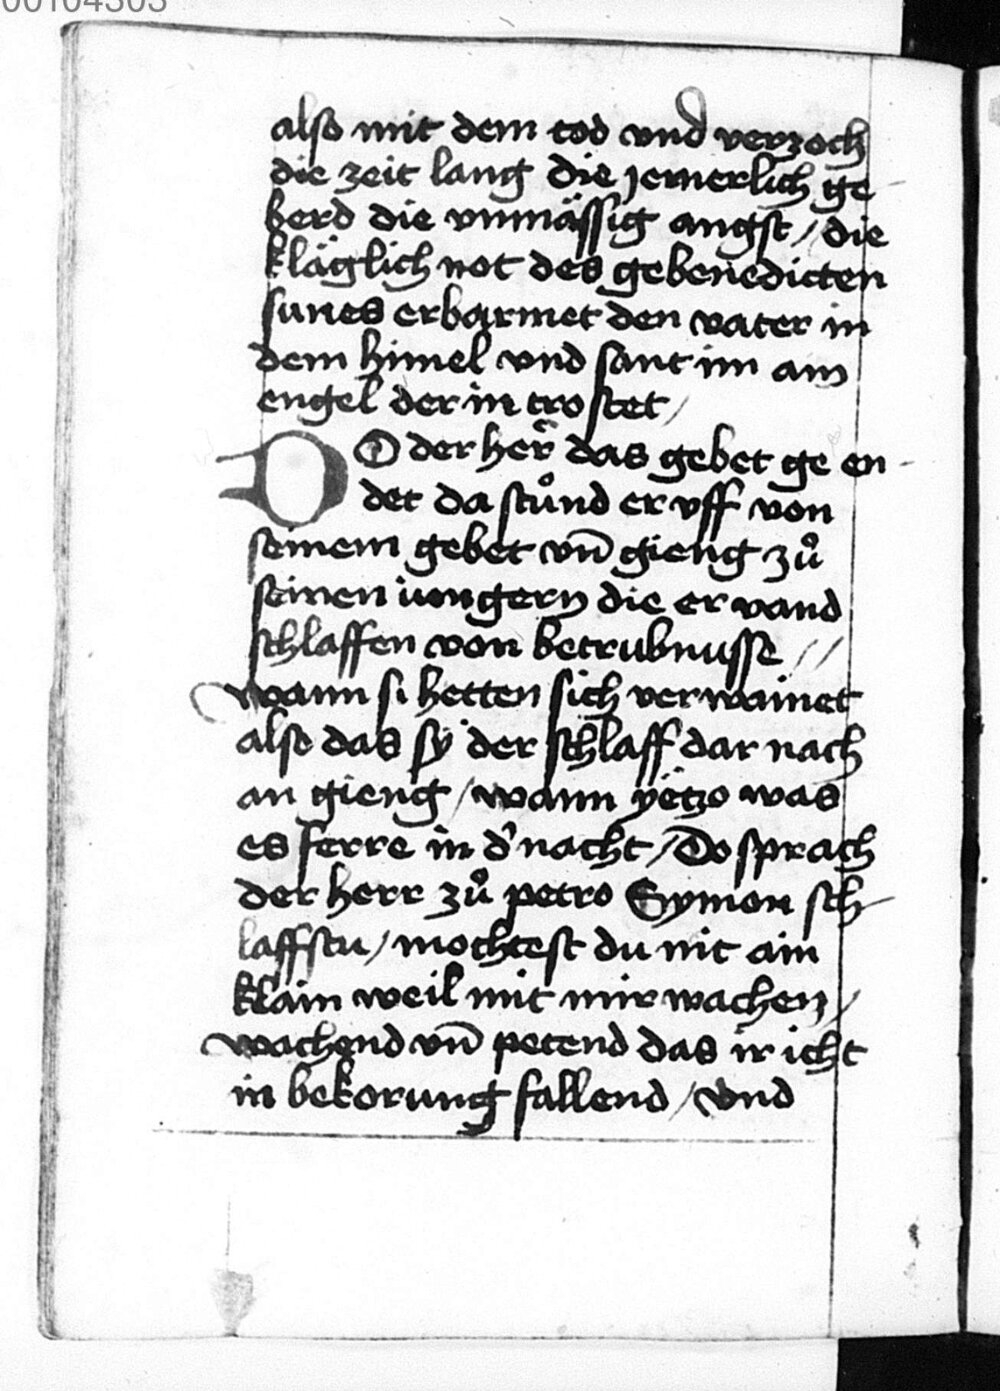 00104303
also mit dem tod vnd verzoch
die zeit lang die jemerlich ge
berd die vnmässig angst / die
kläglich not des gebenedicten
sunes erbarmet den vater in
dem himel vnd sant im ain
engel der in tro stet /
DO der her̃ das gebet ge en-
det da stůnd er vff von
seinem gebet vñ gieng zů
seinen iungern die er vand
schlaffen von betrubnusse //
wann si hetten sich verwainet
also das sÿ der schlaff dar nach
an gieng / wann ÿetzo was
es ferre in d' nacht / Do sprach
der herr zů petro Symon sch-
laffstu / mochtest du nit ain
klain weil mit mir wachen /
wachend vñ petend das ir icht
in bekorung fallend / vnd